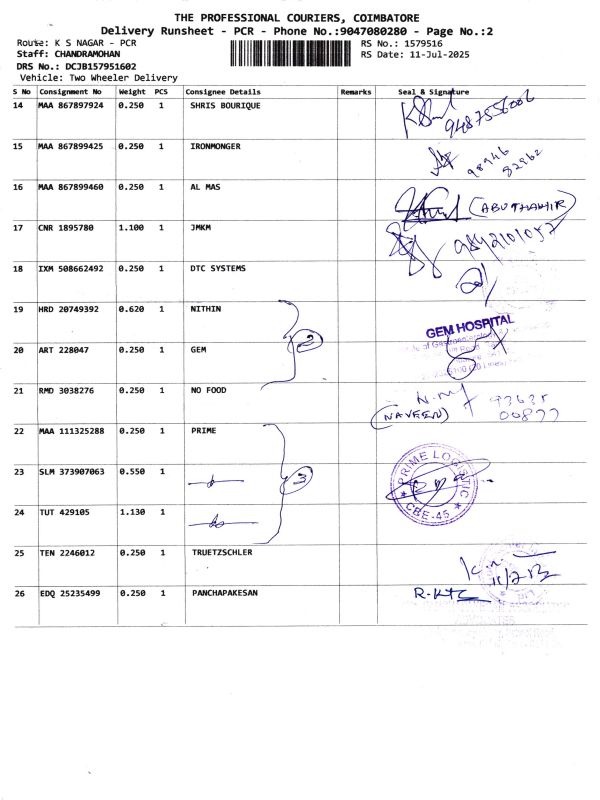 THE PROFESSIONAL COURIERS, COIMBATORE
Delivery Runsheet - PCR - Phone No.:9047080280 - Page No.:2
Route: K S NAGAR - PCR RS No.: 1579516
Staff: CHANDRAMOHAN RS Date: 11-Jul-2025
DRS No.: DCJB157951602
Vehicle: Two Wheeler Delivery
S No Consignment No Weight PCS Consignee Details Remarks Seal & Signature
14 MAA 867897924 0.250 1 SHRIS BOURIQUE
15 MAA 867899425 0.250 1 IRONMONGER 98946
82962
16 MAA 867899460 0.250 1 AL MAS (ABUTHAHIR)
17 CNR 1895780 1.100 1 JMKM 9842101057
18 IXM 508662492 0.250 1 DTC SYSTEMS
19 HRD 20749392 0.620 1 NITHIN
2 GEM HOSPITAL
20 ART 228047 0.250 1 GEM
21 RMD 3038276 0.250 1 NO FOOD
(NAVEEN) 00877
22 MAA 111325288 0.250 1 PRIME
23 SLM 373907063 0.550 1 3 PRIME LOGISTIC
CBE-45
24 TUT 429105 1.130 1
25 TEN 2246012 0.250 1 TRUETZSCHLER
26 EDQ 25235499 0.250 1 PANCHAPAKESAN